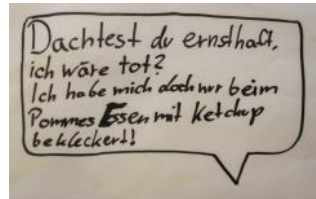 Dachtest du ernsthaft,
ich wäre tot?
Ich habe mich doch nur beim
Pommes Essen mit Ketchup
bekleckert!